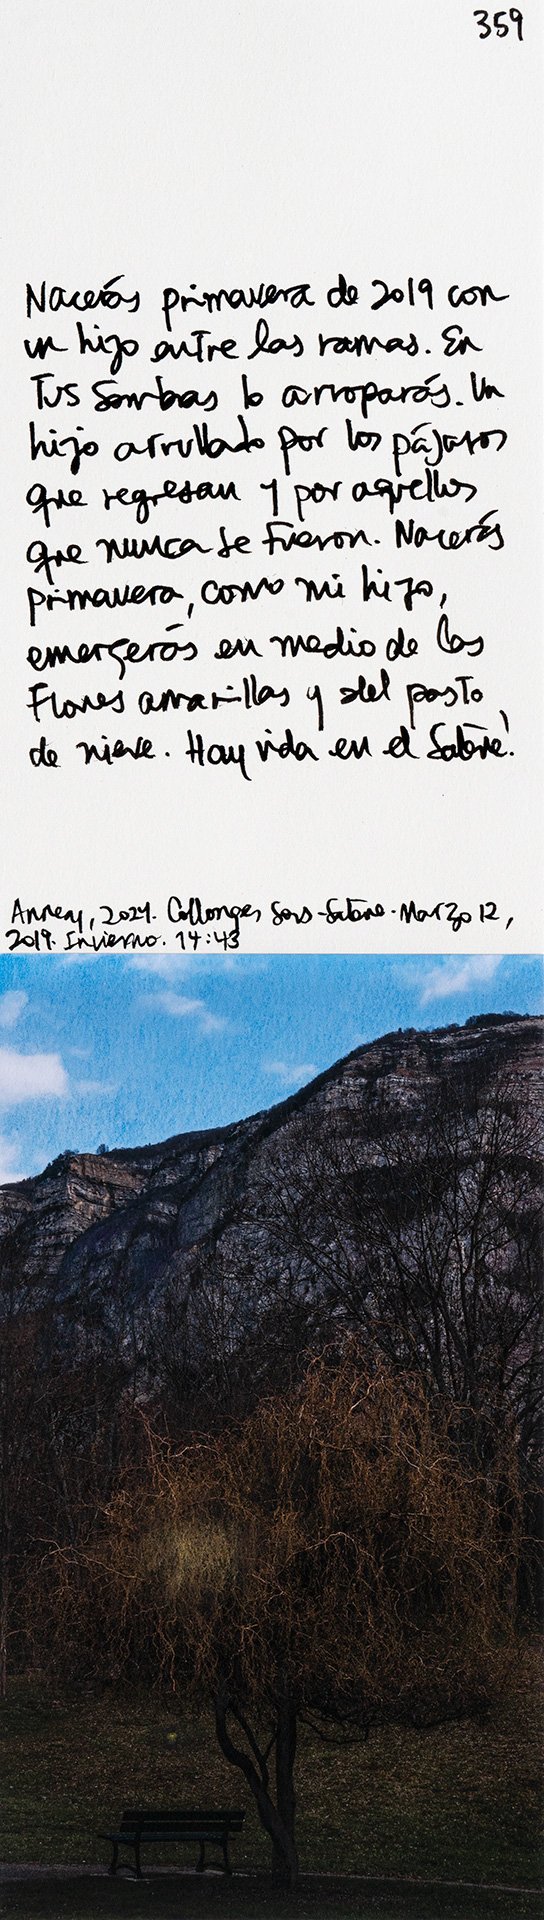 359
Nacerás primavera de 2019 con
un hijo entre las ramas. En
tus sombras lo arroparás. Un
hijo arrullado por los pájaros
que regresan y por aquellos
que nunca se fueron. Nacerás
primavera, como mi hijo,
emergerás en medio de las
flores amarillas y del pasto
de nieve. Hay vida en el Salève!
Annecy, 2024. Collonges Sous-Salève. Marzo 12,
2019. Invierno. 14:43